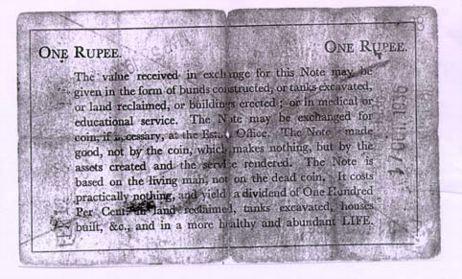 ONE RUPEE. ONE RUPEE.
The value received in exchange for this Note may be
given in the form of bunds constructed, or tanks excavated,
or land reclaimed, or buildings erected ; or in medical or
educational service. The Note may be exchanged for
coin, if necessary, at the Estate Office. The Note made
good, not by the coin, which makes nothing, but by the
assets created and the service rendered. The Note is
based on the living man, not on the dead coin. It costs
practically nothing, and yield a dividend of One Hundred
Per Cent in land reclaimed, tanks excavated, houses
built, &c., and in a more healthy and abundant LIFE.